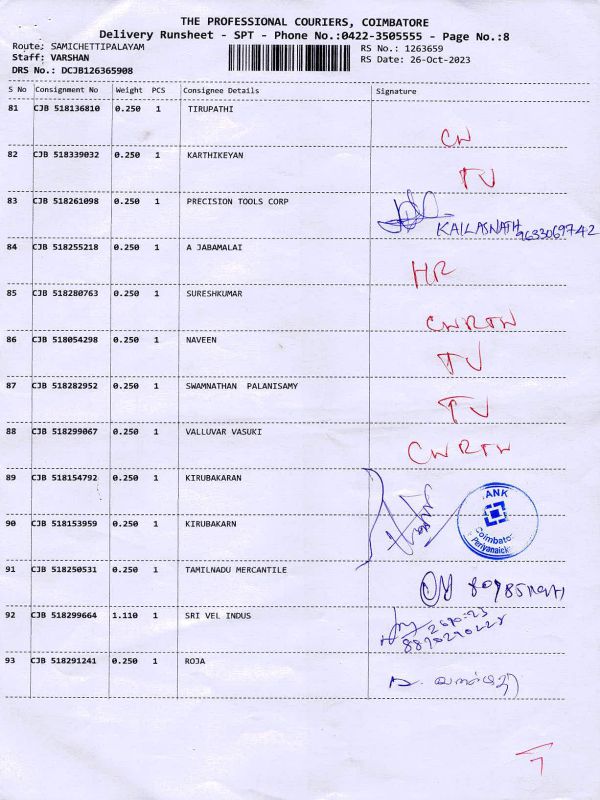 THE PROFESSIONAL COURIERS, COIMBATORE
Delivery Runsheet - SPT - Phone No.:0422-3505555 - Page No.:8
Route: SAMICHETTIPALAYAM
Staff: VARSHAN
DRS No.: DCJB126365908
RS No.: 1263659
RS Date: 26-Oct-2023
S No Consignment No Weight PCS Consignee Details Signature
81 CJB 518136810 0.250 1 TIRUPATHI
CW
82 CJB 518339032 0.250 1 KARTHIKEYAN
TV
83 CJB 518261098 0.250 1 PRECISION TOOLS CORP
KAILASNATH
9633069742
84 CJB 518255218 0.250 1 A JABAMALAI
HR
85 CJB 518280763 0.250 1 SURESHKUMAR
CWRTW
86 CJB 518054298 0.250 1 NAVEEN
TV
87 CJB 518282952 0.250 1 SWAMNATHAN PALANISAMY
TV
88 CJB 518299067 0.250 1 VALLUVAR VASUKI
CWRTW
89 CJB 518154792 0.250 1 KIRUBAKARAN
ANK
90 CJB 518153959 0.250 1 KIRUBAKARN
Coimbator
Periyanaick
91 CJB 518250531 0.250 1 TAMILNADU MERCANTILE
92 CJB 518299664 1.110 1 SRI VEL INDUS
93 CJB 518291241 0.250 1 ROJA